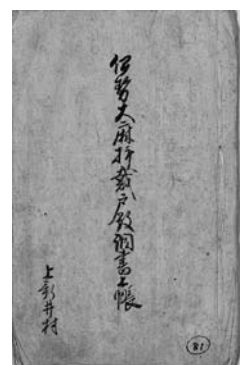 伊勢大麻拝戴戸数調書上帳
上新井村
81